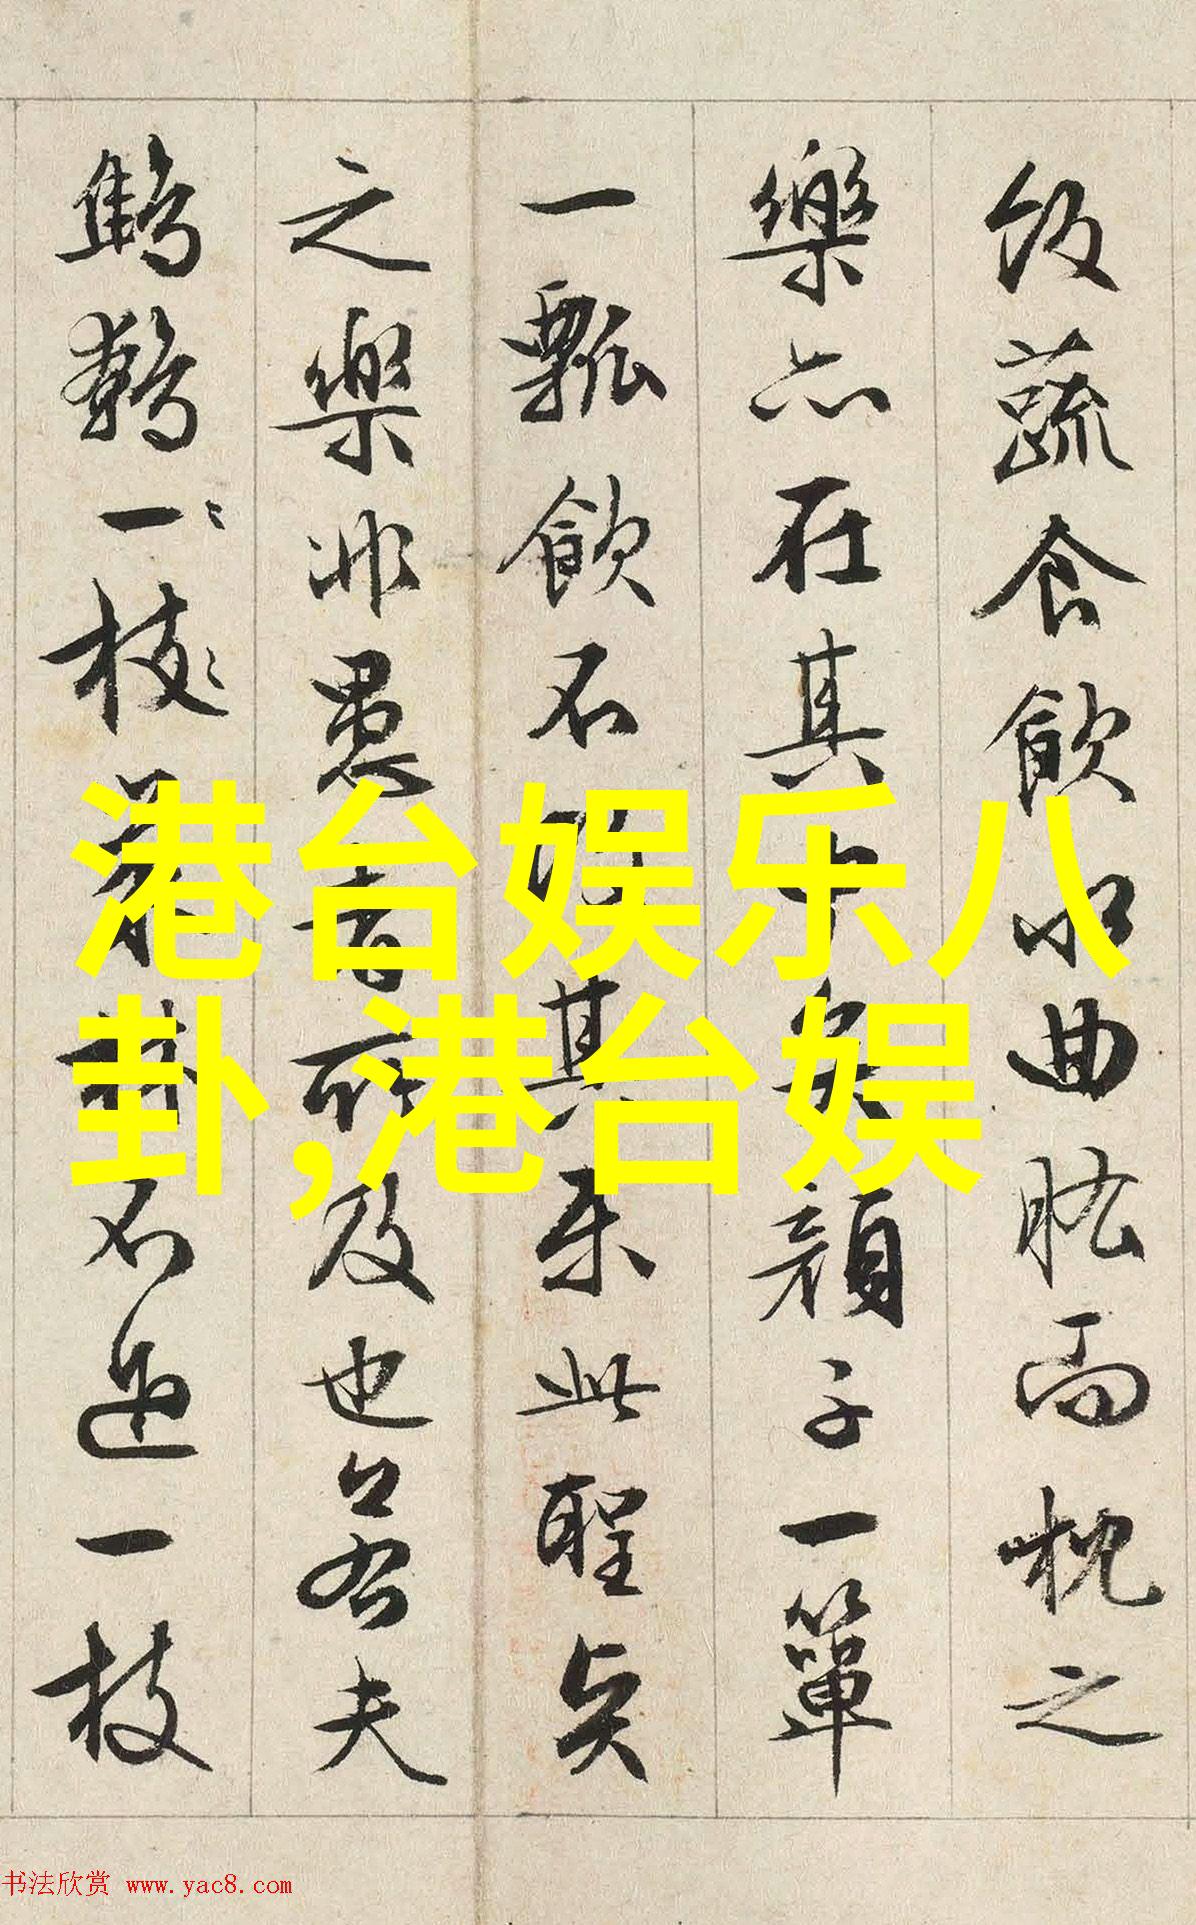 饭蔬食飲水曲肱而枕之
樂亦在其中矣顔子一箪
一瓢飲不改其樂此聖贤
之樂非愚者所及也君若夫
鷦鷯一枝
不過一枝
港台娱乐八
卦,港台娱
书法欣赏 www.yac8.com